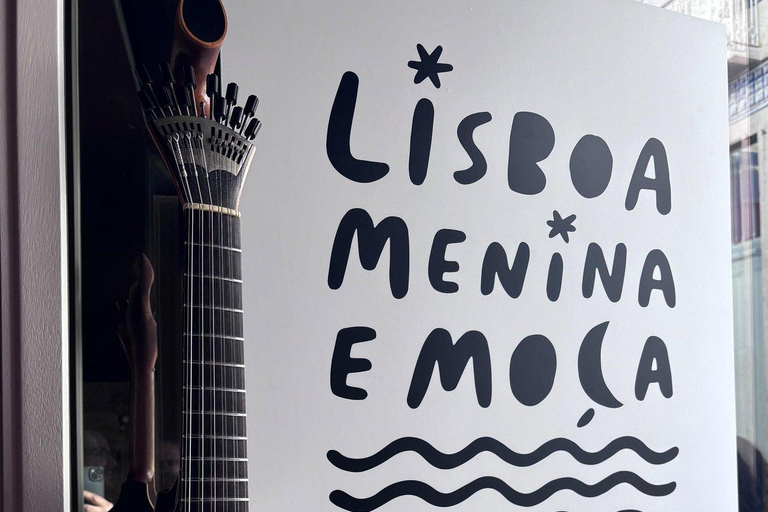 LiSBOA
MENiNA
E MOÇA